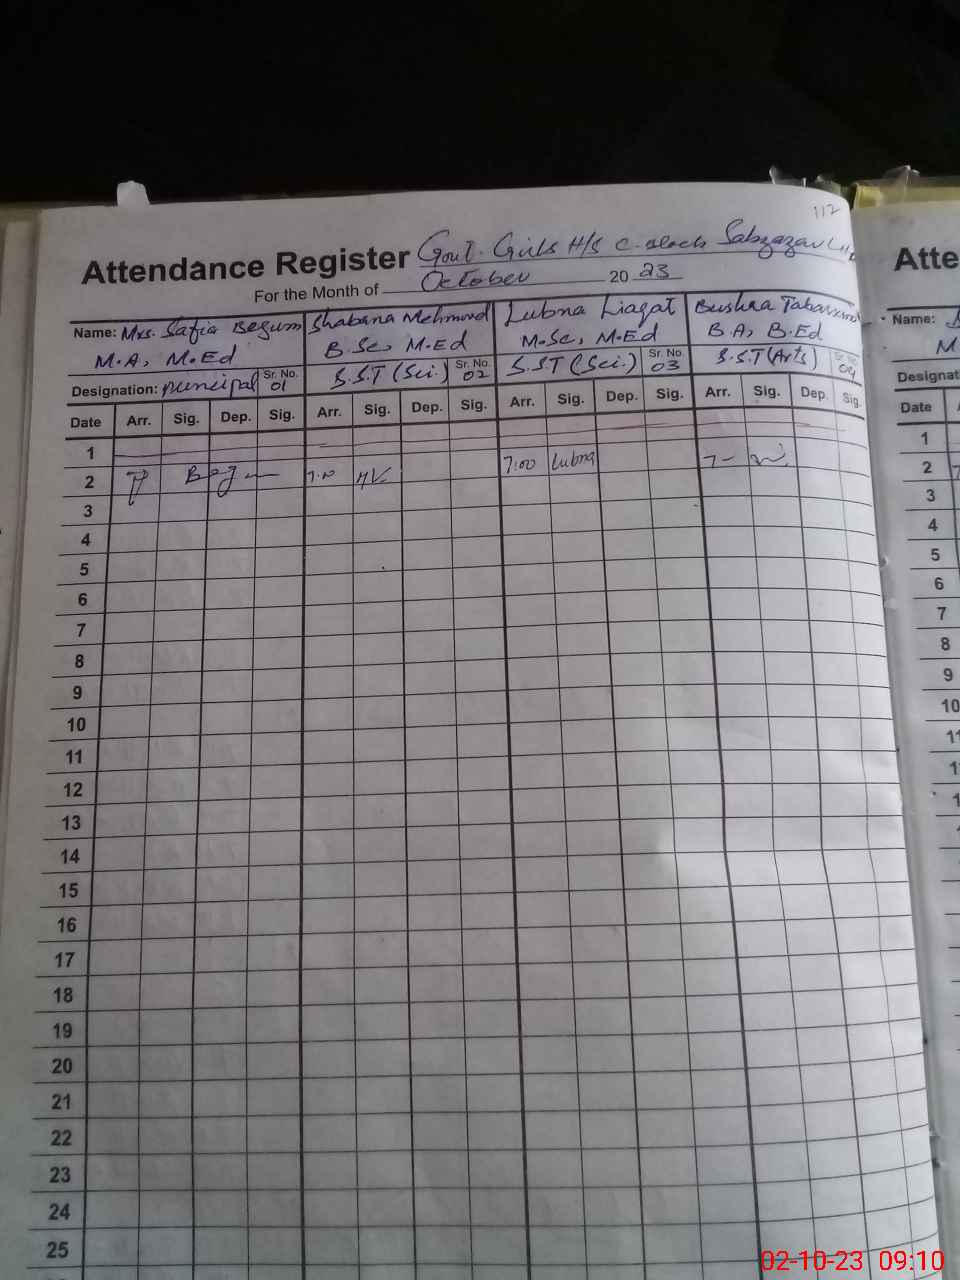 112
Attendance Register Govt. Girls H/S C. Block Sabzazar
For the Month of October 2023
Name: Mrs. Safia Begum Shabana Mehmood Lubna Liaqat Bushra
M.A, M.Ed B.Sc, M.Ed M.Sc, M.Ed B.A, B.Ed
Designation: principal Sr. No. 01 S.S.T (Sci.) Sr. No. 02 S.S.T (Sci.) Sr. No. 03 S.S.T (Arts) Sr. No. 04
Date Arr. Sig. Dep. Sig. Arr. Sig. Dep. Sig. Arr. Sig. Dep. Sig. Arr. Sig. Dep. Sig.
1
2 P 7:00 7:00 Lubna 7-
3
4
5
6
7
8
9
10
11
12
13
14
15
16
17
18
19
20
21
22
23
24
25
Atte
Name:
M
Designat
Date
1
2 7
3
4
5
6
7
8
9
10
02-10-23 09:10